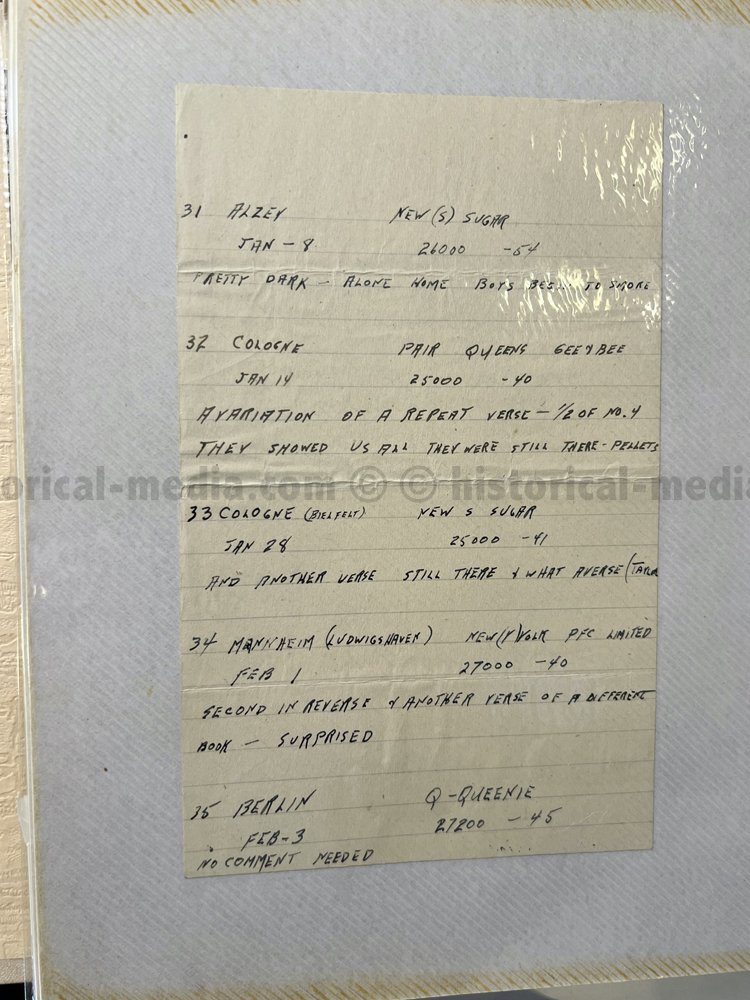 31 ALZEY NEW (S) SUGAR
JAN - 8 26000 -54
PRETTY DARK - ALONE HOME BOYS TO SMOKE
32 COLOGNE PAIR QUEENS GEE & BEE
JAN 14 25000 -40
A VARIATION OF A REPEAT VERSE - 1/2 OF NO. 4
THEY SHOWED US ALL THEY WERE STILL THERE - PELLETS
orical-media.com © © historical-media
33 COLOGNE (BIELFELT) NEW S SUGAR
JAN 28 25000 -41
AND ANOTHER VERSE STILL THERE & WHAT A VERSE
34 MANNHEIM (LUDWIGSHAVEN) NEW PFC LIMITED
FEB 1 27000 -40
SECOND IN REVERSE & ANOTHER VERSE OF A DIFFERENT
BOOK - SURPRISED
35 BERLIN Q-QUEENIE
FEB-3 27200 -45
NO COMMENT NEEDED